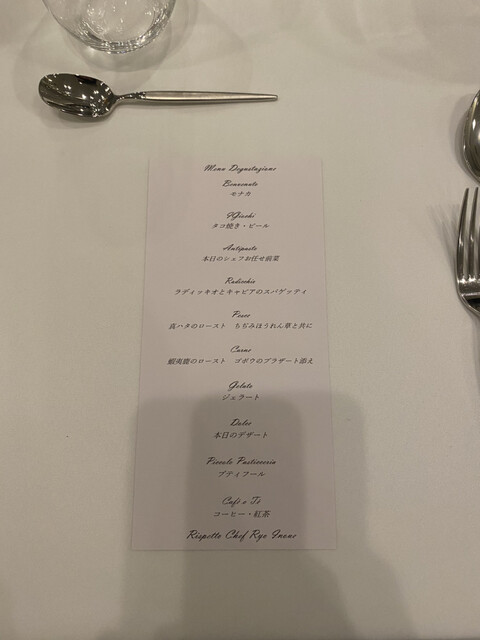 Menu Degustazione
Benvenuto
モナカ
Giochi
タコ焼き・ビール
Antipasto
本日のシェフお任せ前菜
Radicchio
ラディッキオとキャビアのスパゲッティ
Pesce
真ハタのロースト　ちぢみほうれん草と共に
Carne
蝦夷鹿のロースト　ゴボウのブラザート添え
Gelato
ジェラート
Dolce
本日のデザート
Piccola Pasticceria
プティフール
Café o Té
コーヒー・紅茶
Rispetto Chef Ryo Inoue